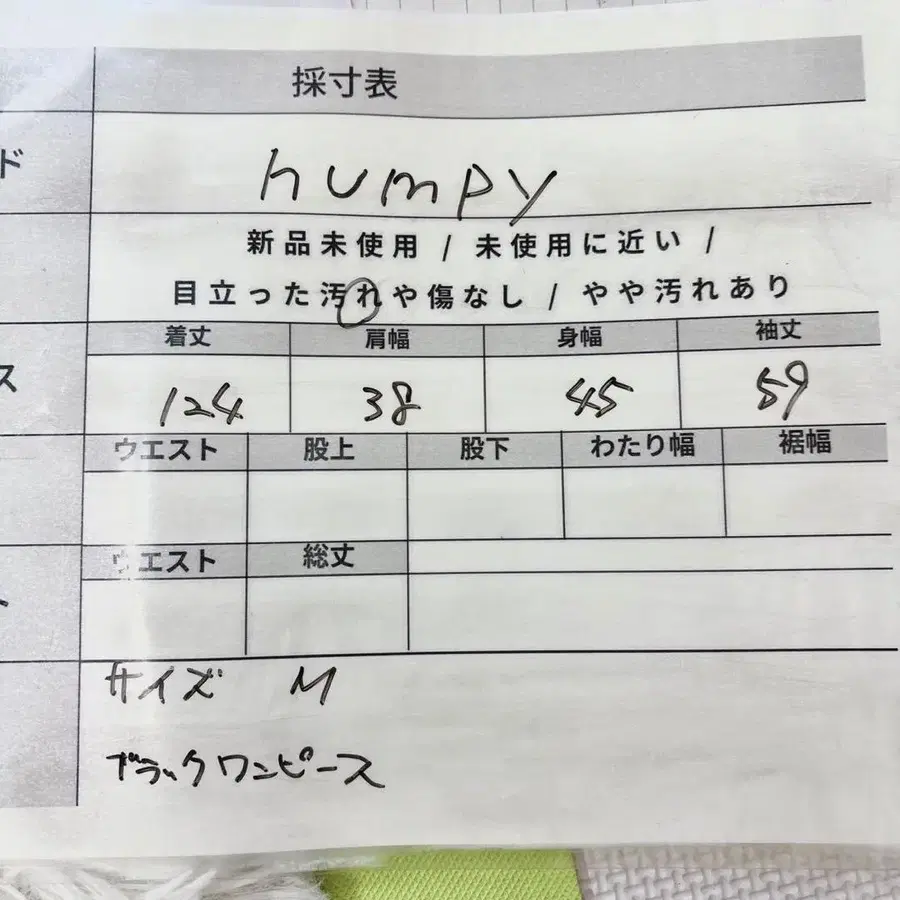 採寸表
ド
humpy
新品未使用 / 未使用に近い /
目立った汚れや傷なし / やや汚れあり
着丈 肩幅 身幅 袖丈
ス
124 38 45 59
ウエスト 股上 股下 わたり幅 裾幅
ウエスト 総丈
ト
サイズ M
ブラックワンピース